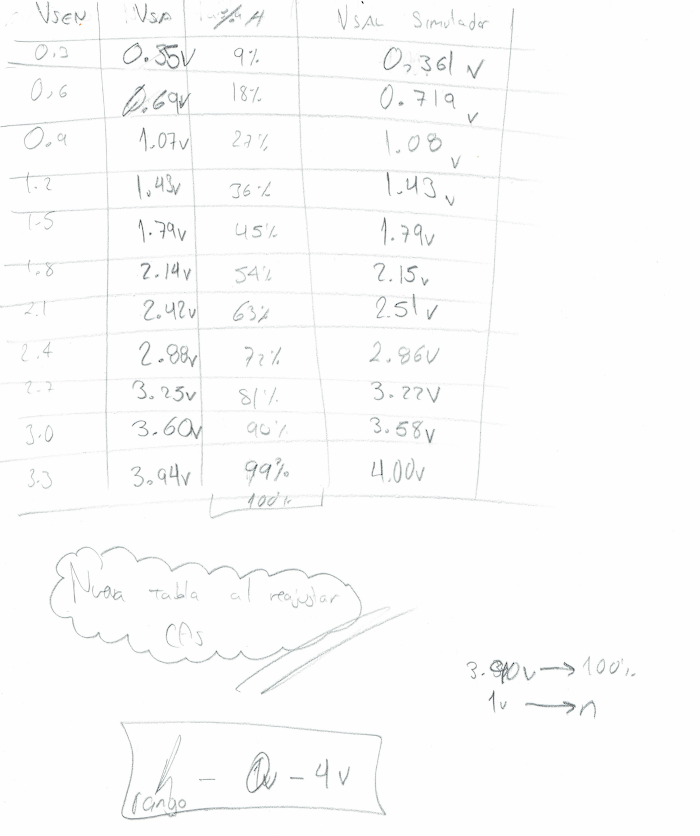 VSEN VSA % H VSAL Simulador
0.3 0.35v 9% 0,361 v
0,6 0.69v 18% 0.719 v
0.9 1.07v 27% 1.08 v
1.2 1.43v 36% 1.43 v
1.5 1.79v 45% 1.79v
1.8 2.14v 54% 2.15v
2.1 2.42v 63% 2.51v
2.4 2.88v 72% 2.86v
2.7 3.25v 81% 3.22v
3.0 3.60v 90% 3.58v
3.3 3.94v 99% 4.00v
100%
Nueva tabla al reajustar
CAs
v → 100%
1v → n
rango - 0v - 4v